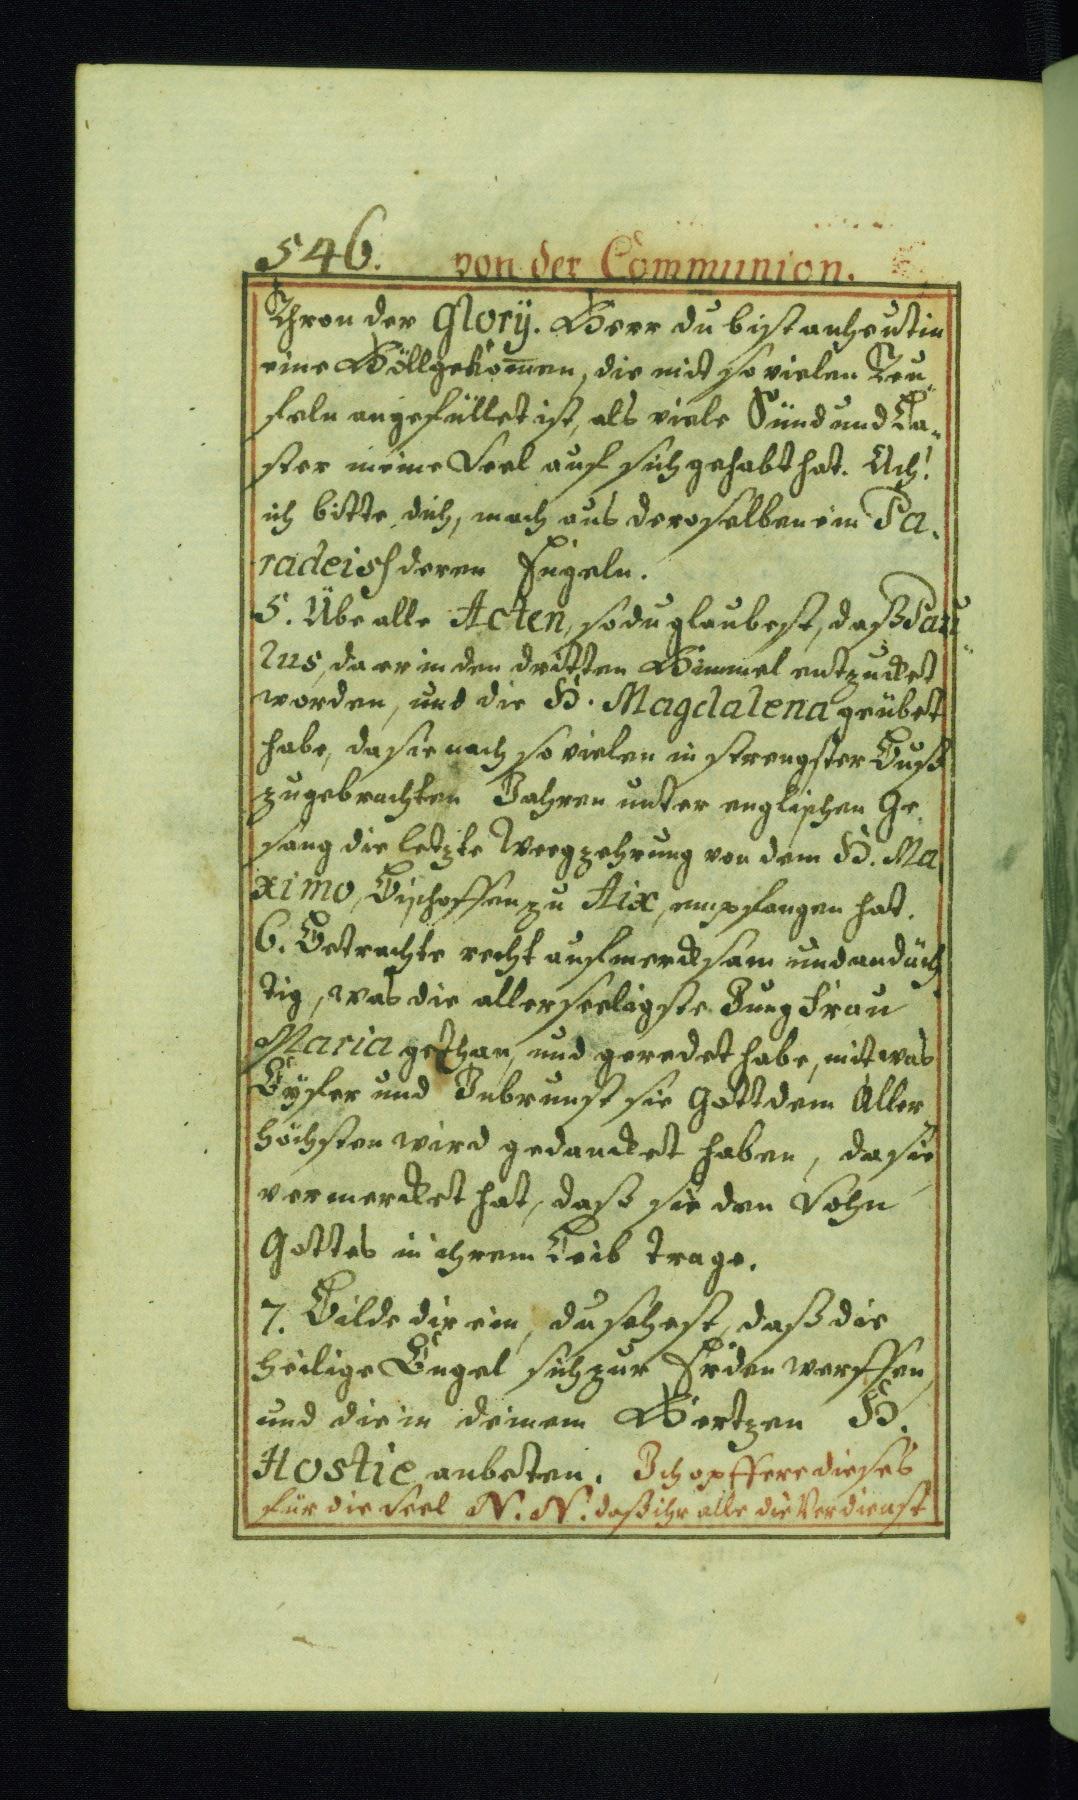 546. von der Communion.
Thron der Glorÿ. Herr du bist anheut in
eine Höll gekom̅en, die mit so vielen Teu„
feln angefüllet ist, als viele Sünd und La„
ster meine Seel auf sich gehabt hat. Ach!
ich bitte dich, mach aus deroselben ein Pa„
radeiß deren Engeln.
5. Übe alle Acten, so du glaubest, daß Pau„
lus, da er in den dritten Himmel entzucket
worden, und die H. Magdalena geübet
habe, da sie nach so vielen in strengster Buß
zugebrachten Jahren unter englischen Ge„
sang die letzte Weegzehrung von dem H. Ma
ximo, Bischoffen zu Aix, empfangen hat.
6. Betrachte recht aufmercksam und andäch
tig, was die allerseeligste Jungfrau
Maria gethan, und geredet habe, mit was
Eÿfer und Inbrunst sie Gott dem Aller
höchsten wird gedancket haben, da sie
vermercket hat, daß sie den Sohn
Gottes in ihrem Leib trage.
7. Bilde dir ein, du sehest, daß die
heilige Engel sich zur Erden werffen,
und die in deinem Hertzen H.
Hostie anbeten. Ich opffere dieses
für die Seel N. N. daß ihr alle die Verdienst